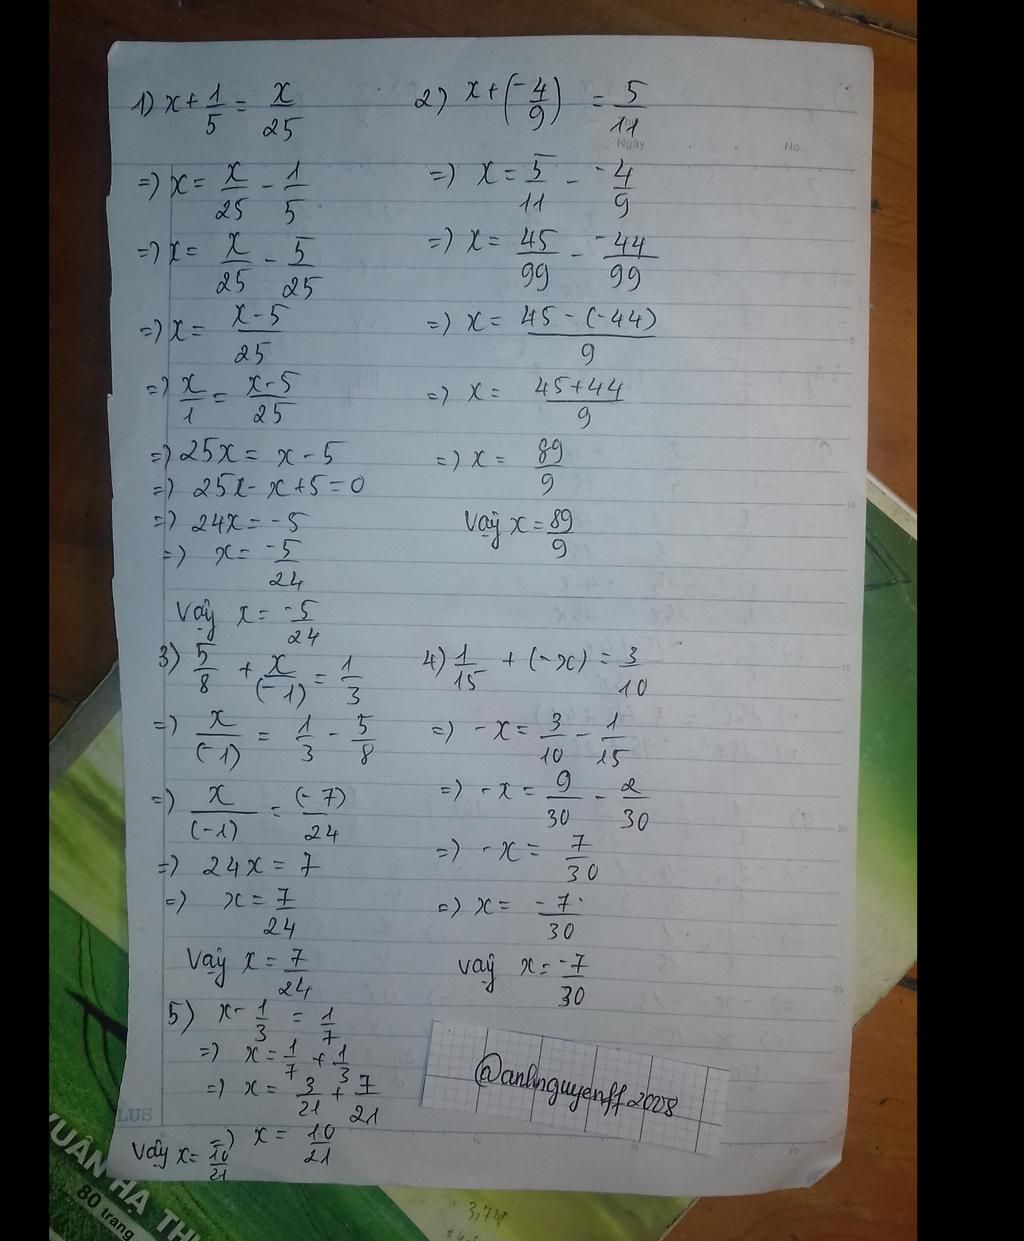 1) x + 1/5 = x/25
=) x = x/25 - 1/5
=) x = x/25 - 5/25
=) x = x-5/25
=) x/1 = x-5/25
=) 25x = x - 5
=) 25x - x + 5 = 0
=) 24x = -5
=) x = -5/24
Vậy x = -5/24
2) x + (-4/9) = 5/11
=) x = 5/11 - -4/9
=) x = 45/99 - -44/99
=) x = 45-(-44)/9
=) x = 45+44/9
=) x = 89/9
Vậy x = 89/9
3) 5/8 + x/(-1) = 1/3
=) x/(-1) = 1/3 - 5/8
=) x/(-1) = (-7)/24
=) 24x = 7
=) x = 7/24
Vậy x = 7/24
4) 1/15 + (-x) = 3/10
=) -x = 3/10 - 1/15
=) -x = 9/30 - 2/30
=) -x = 7/30
=) x = -7/30
Vậy x = -7/30
5) x - 1/3 = 1/7
=) x = 1/7 + 1/3
=) x = 3/21 + 7/21
=) x = 10/21
Vậy x = 10/21
@anhnguyenff2008
Ngày
No
LUS
XUÂN HẠ TH
80 trang
3,74